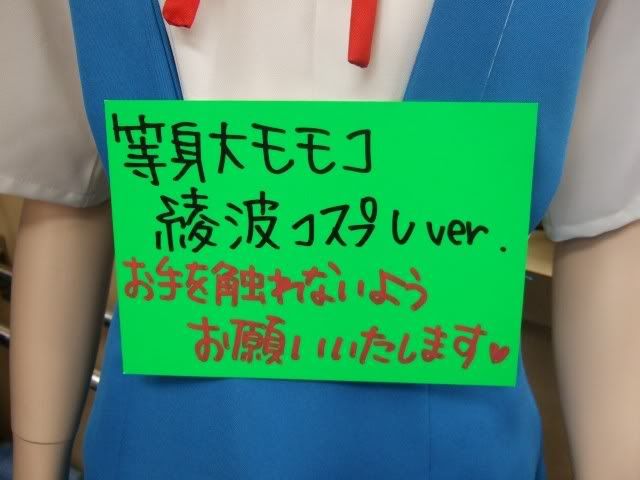 等身大モモコ
綾波コスプレver.
お手を触れないよう
お願いいたします♥